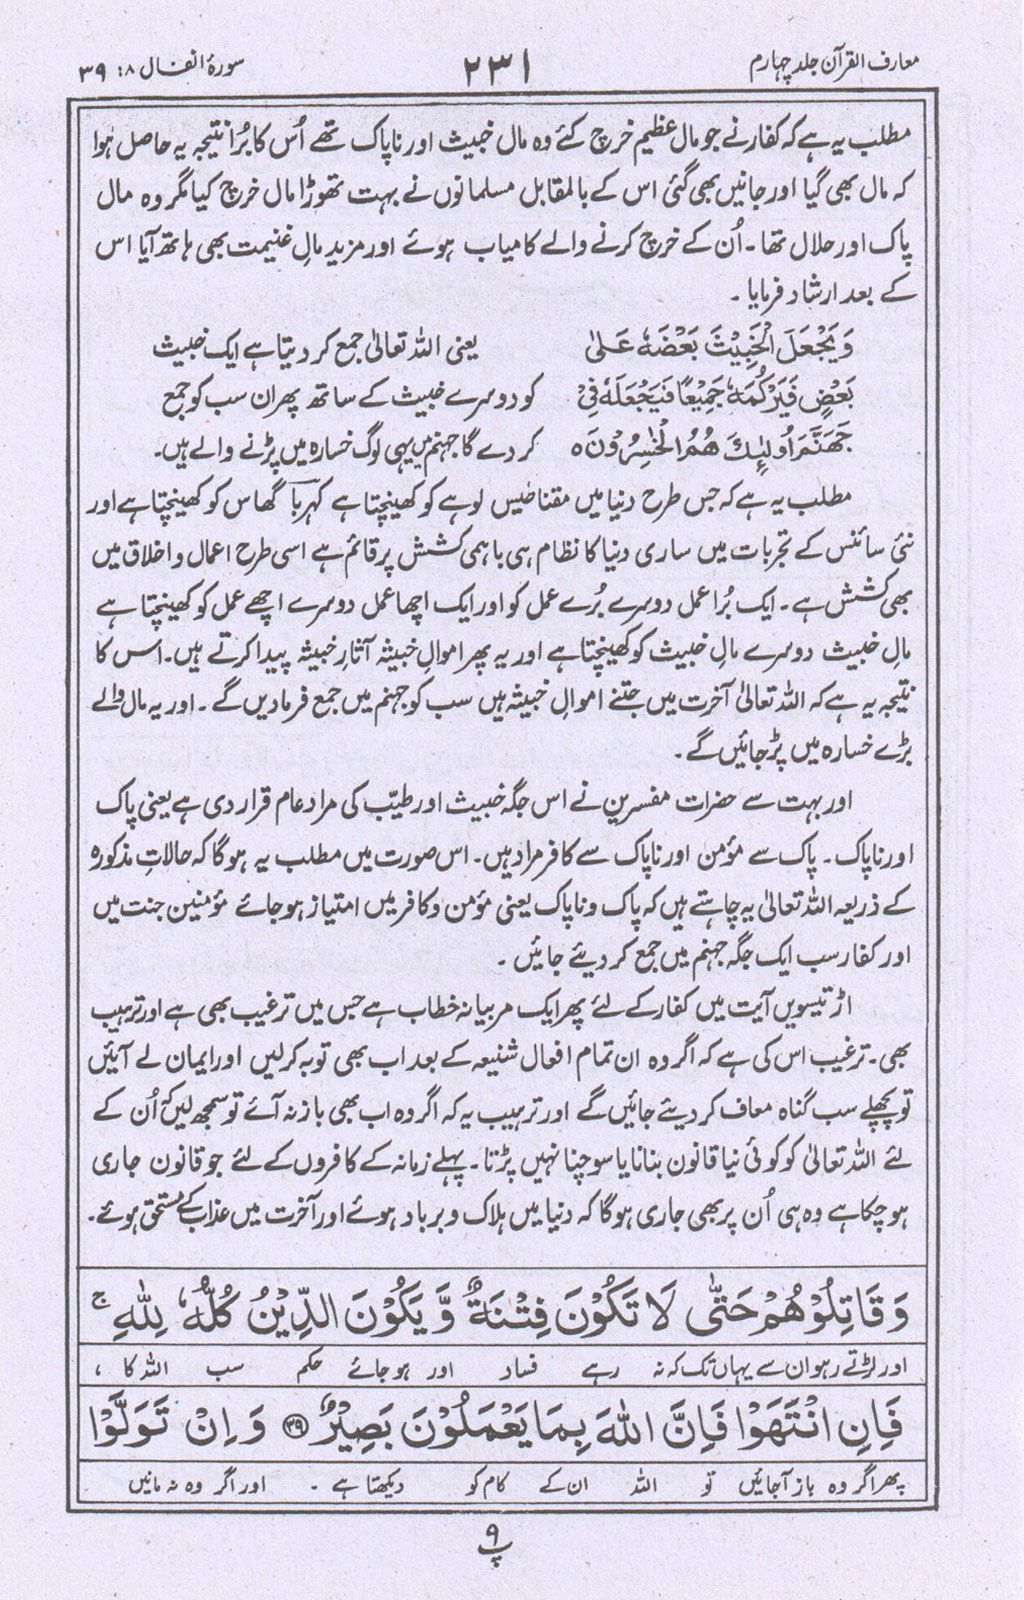 معارف القرآن جلد چہارم
۲۳۱
سورۂ انفال ۸: ۳۹
مطلب یہ ہے کہ کفار نے جو مال عظیم خرچ کئے وہ مال خبیث اور ناپاک تھے اُس کا بُرا نتیجہ یہ حاصل ہوا
کہ مال بھی گیا اور جانیں بھی گئی اس کے بالمقابل مسلمانوں نے بہت تھوڑا مال خرچ کیا مگر وہ مال
پاک اور حلال تھا۔ اُن کے خرچ کرنے والے کامیاب ہوئے اور مزید مالِ غنیمت بھی ہاتھ آیا اس
کے بعد ارشاد فرمایا ۔
وَيَجْعَلَ الْخَبِيْثَ بَعْضَهٗ عَلٰى
بَعْضٍ فَيَرْكُمَهٗ جَمِيْعًا فَيَجْعَلَهٗ فِيْ
جَهَنَّمَ اُولٰٓئِكَ هُمُ الْخٰسِرُوْنَ ہ
یعنی اللہ تعالیٰ جمع کر دیتا ہے ایک خبیث
کو دوسرے خبیث کے ساتھ پھر ان سب کو جمع
کر دے گا جہنم میں یہی لوگ خسارہ میں پڑنے والے ہیں۔
مطلب یہ ہے کہ جس طرح دنیا میں مقناطیس لوہے کو کھینچتا ہے کہربا گھاس کو کھینچتا ہے اور
نئی سائنس کے تجربات میں ساری دنیا کا نظام ہی باہمی کشش پر قائم ہے اسی طرح اعمال و اخلاق میں
بھی کشش ہے۔ ایک بُرا عمل دوسرے بُرے عمل کو اور ایک اچھا عمل دوسرے اچھے عمل کو کھینچتا ہے
مالِ خبیث دوسرے مالِ خبیث کو کھینچتا ہے اور یہ پھر اموالِ خبیثہ آثارِ خبیثہ پیدا کرتے ہیں۔ اس کا
نتیجہ یہ ہے کہ اللہ تعالیٰ آخرت میں جتنے اموالِ خبیثہ ہیں سب کو جہنم میں جمع فرما دیں گے۔ اور یہ مال والے
بڑے خسارہ میں پڑ جائیں گے۔
اور بہت سے حضرات مفسرین نے اس جگہ خبیث اور طیّب کی مراد عام قرار دی ہے یعنی پاک
اور ناپاک۔ پاک سے مؤمن اور ناپاک سے کافر مراد ہیں۔ اس صورت میں مطلب یہ ہوگا کہ حالاتِ مذکورہ
کے ذریعہ اللہ تعالیٰ یہ چاہتے ہیں کہ پاک و ناپاک یعنی مؤمن و کافر میں امتیاز ہو جائے مؤمنین جنت میں
اور کفار سب ایک جگہ جہنم میں جمع کر دیئے جائیں ۔
اڑتیسویں آیت میں کفار کے لئے پھر ایک مربیانہ خطاب ہے جس میں ترغیب بھی ہے اور ترہیب
بھی۔ ترغیب اس کی ہے کہ اگر وہ ان تمام افعال شنیعہ کے بعد اب بھی توبہ کرلیں اور ایمان لے آئیں
تو پچھلے سب گناہ معاف کر دیئے جائیں گے اور ترہیب یہ کہ اگر وہ اب بھی باز نہ آئے تو سمجھ لیں کہ اُن کے
لئے اللہ تعالیٰ کو کوئی نیا قانون بنانا یا سوچنا نہیں پڑتا۔ پہلے زمانہ کے کافروں کے لئے جو قانون جاری
ہو چکا ہے وہ ہی اُن پر بھی جاری ہوگا کہ دنیا میں ہلاک و برباد ہوئے اور آخرت میں عذاب کے مستحق ہوئے۔
وَقَاتِلُوْهُمْ حَتّٰى لَا تَكُوْنَ فِتْنَةٌ وَّيَكُوْنَ الدِّيْنُ كُلُّهٗ لِلّٰهِ ۚ
اور لڑتے رہو ان سے یہاں تک کہ نہ رہے فساد اور ہو جائے حکم سب اللہ کا ،
فَاِنِ انْتَهَوْا فَاِنَّ اللّٰهَ بِمَا يَعْمَلُوْنَ بَصِيْرٌ ۳۹ وَاِنْ تَوَلَّوْا
پھر اگر وہ باز آجائیں تو اللہ ان کے کام کو دیکھتا ہے ۔ اور اگر وہ نہ مانیں
۹
پ